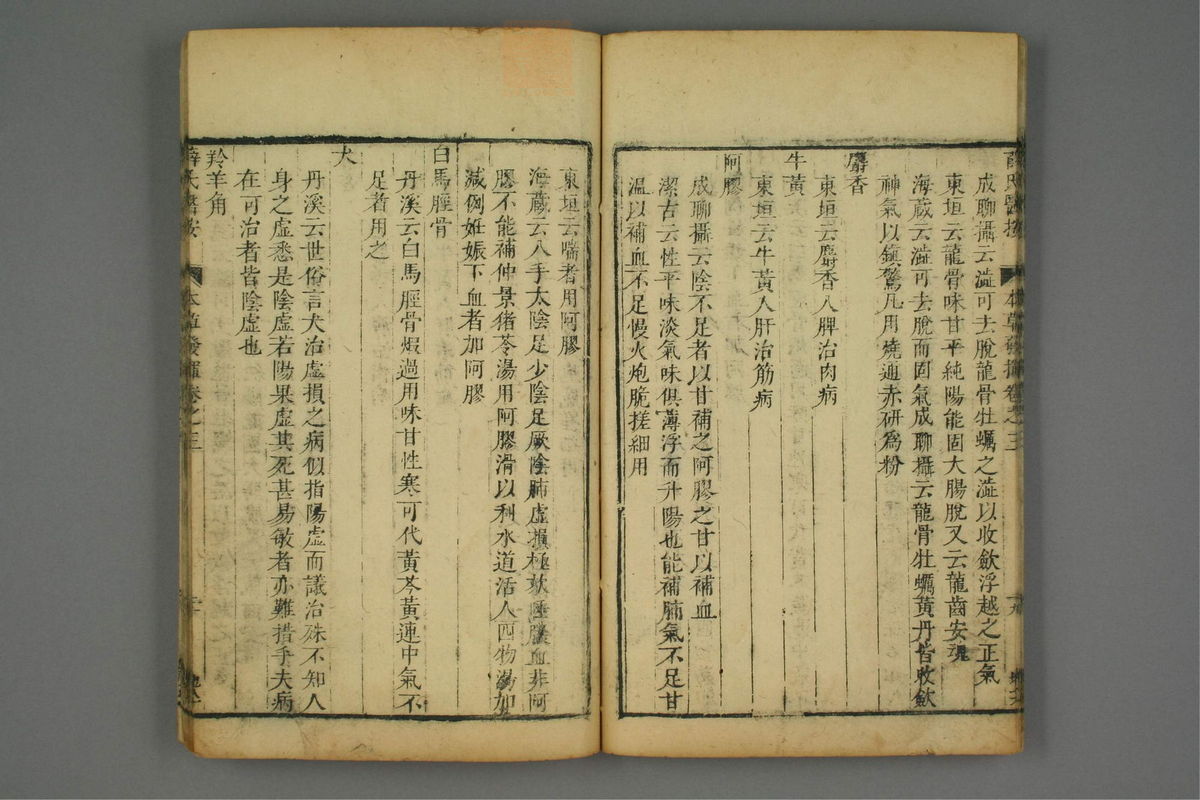 薛氏醫按 本草發揮卷之三 十九
成聊攝云澁可去脫龍骨牡蠣之澁以收歛浮越之正氣
東垣云龍骨味甘平純陽能固大腸脫又云龍齒安魂
海蔵云澁可去脫而固氣成聊攝云龍骨牡蠣黃丹皆收歛
神氣以鎮驚凡用燒通赤研爲粉
麝香
東垣云麝香入脾治肉病
牛黃
東垣云牛黃入肝治筋病
阿膠
成聊攝云陰不足者以甘補之阿膠之甘以補血
潔古云性平味淡氣味俱薄浮而升陽也能補肺氣不足甘
温以補血不足慢火炮脆搓細用
東垣云喘者用阿膠
海蔵云入手太陰足少陰足厥陰肺虛損極欬唾膿血非阿
膠不能補仲景猪苓湯用阿膠滑以利水道活人四物湯加
減例姙娠下血者加阿膠
白馬脛骨
丹溪云白馬脛骨煆過用味甘性寒可代黃芩黃連中氣不
足者用之
犬
丹溪云世俗言犬治虛損之病似指陽虛而議治殊不知人
身之虛悉是陰虛若陽果虛其死甚易敏者亦難措手夫病
在可治者皆陰虛也
羚羊角
薛氏醫按 本草發揮卷之三 二十